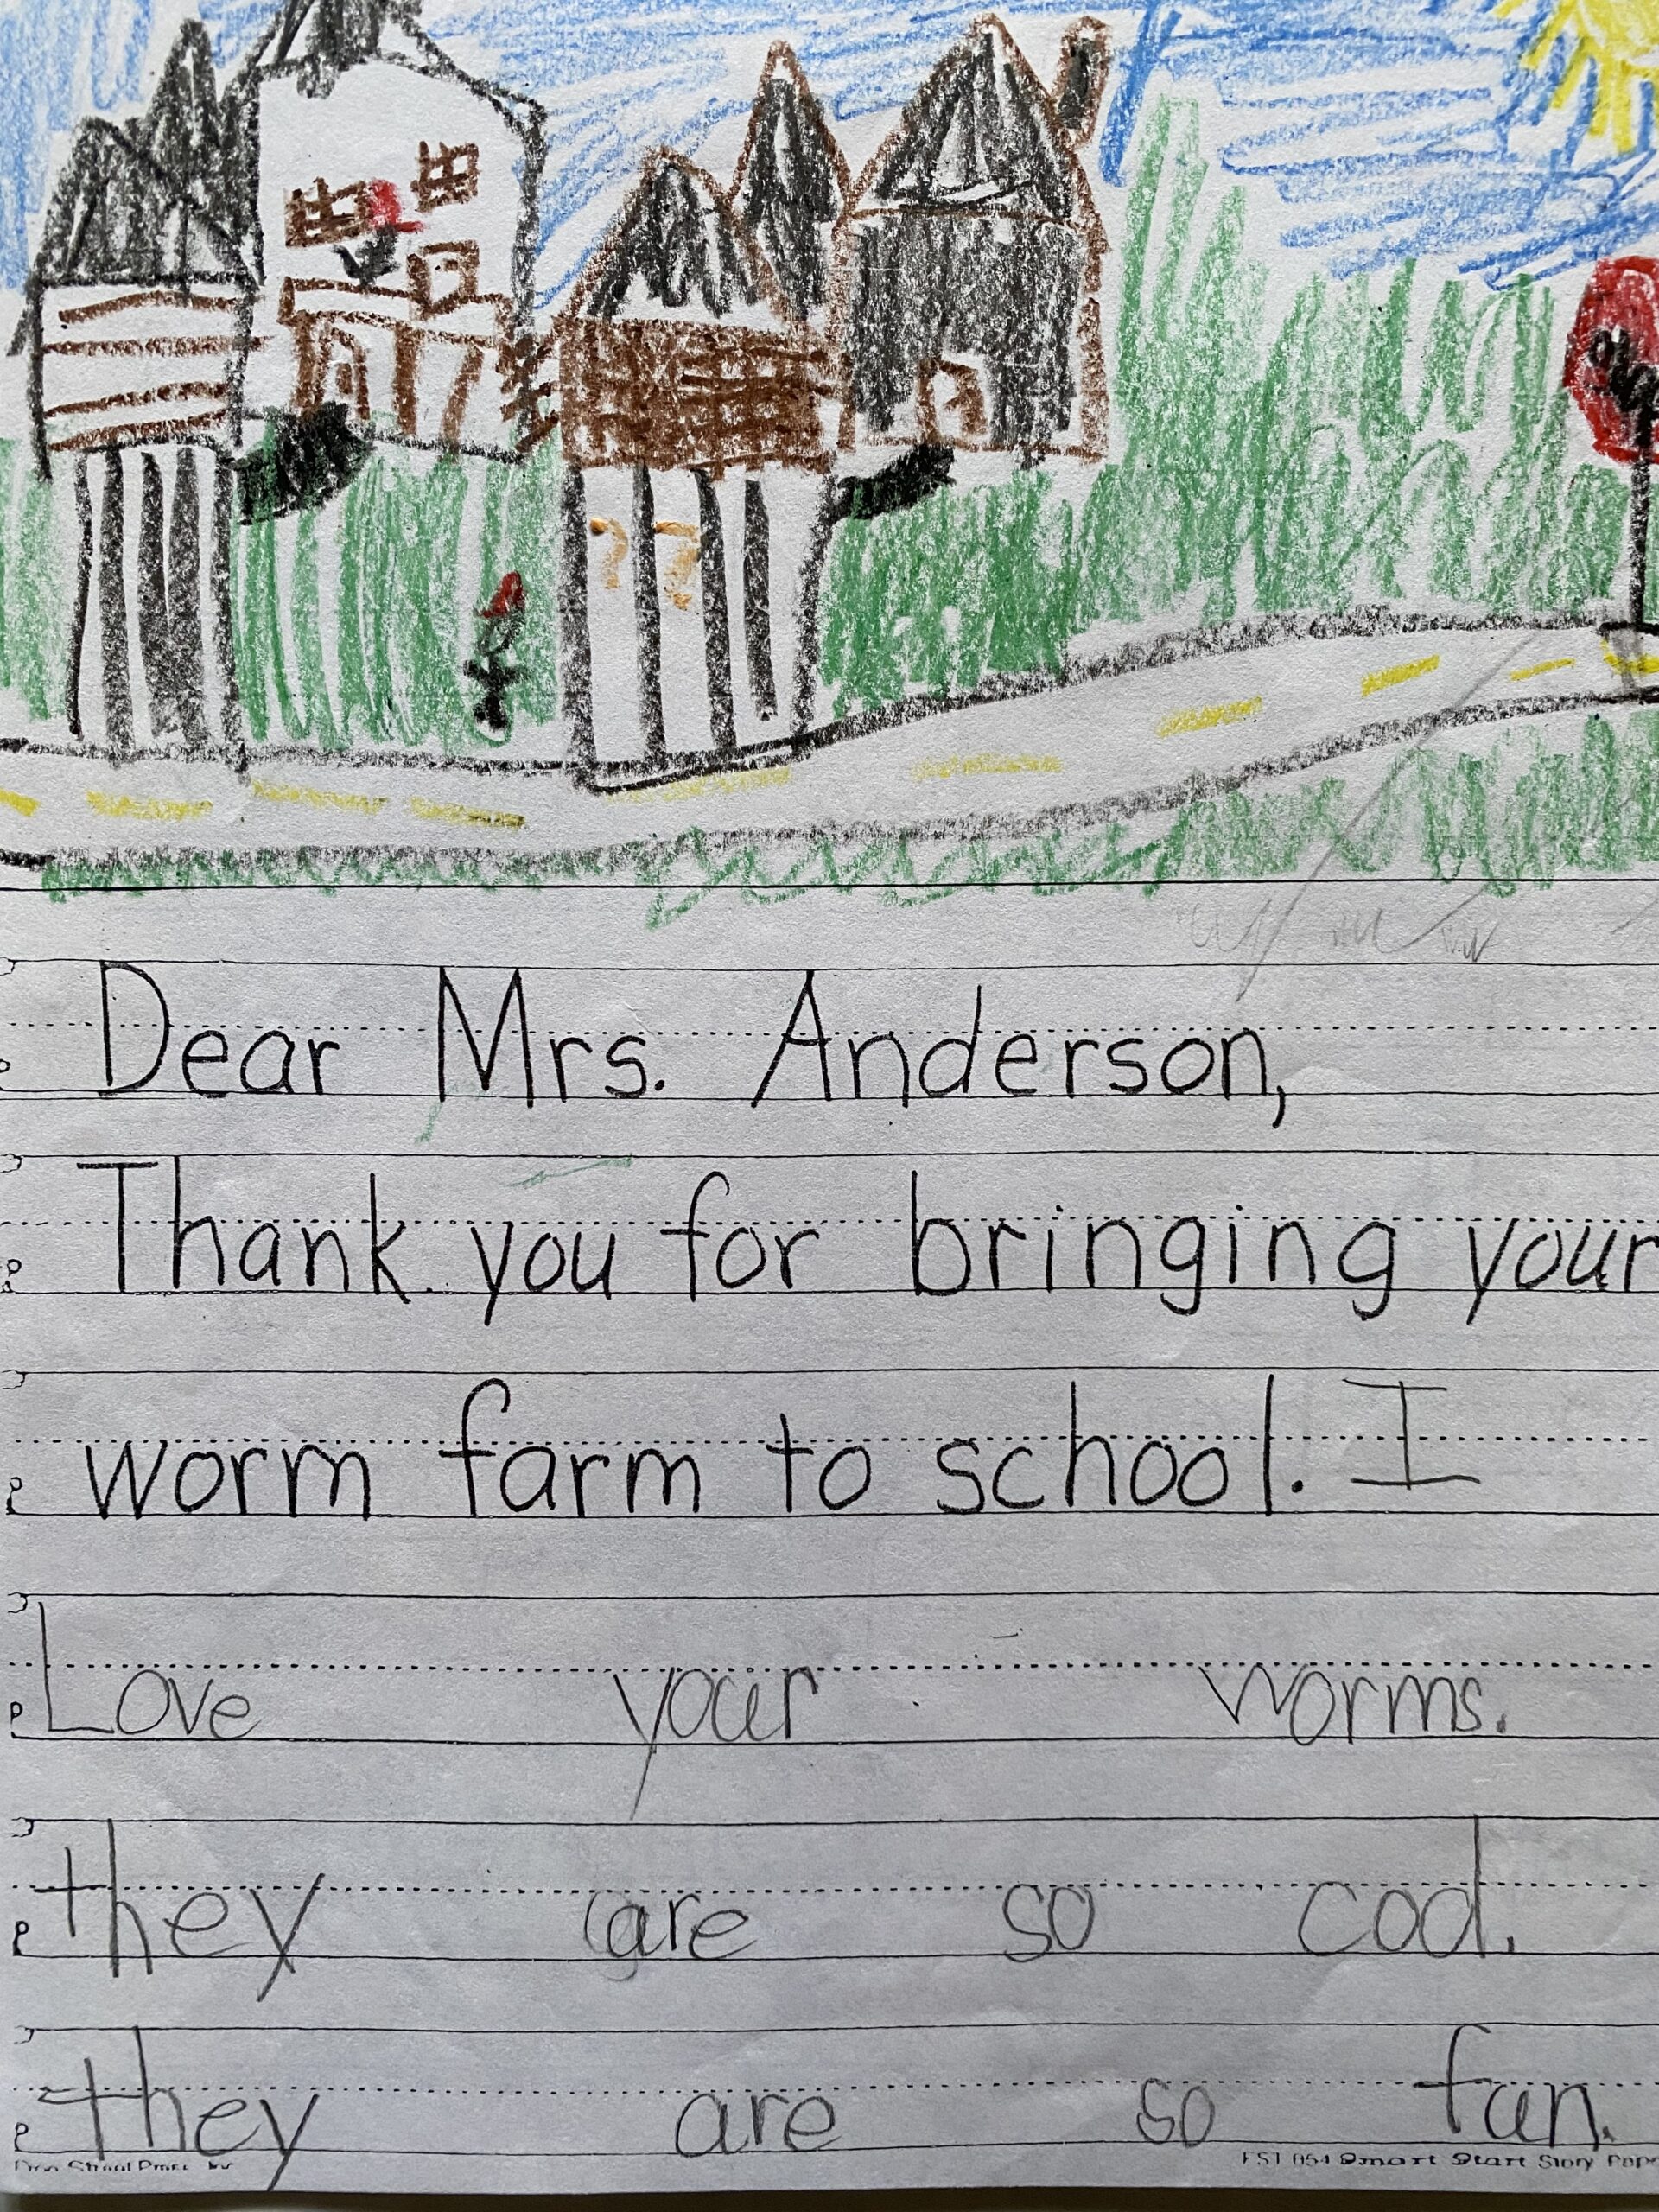 Dear Mrs. Anderson,
Thank you for bringing your
worm farm to school. I
Love your worms.
they are so cool.
they are so fun.
Smart Start Story